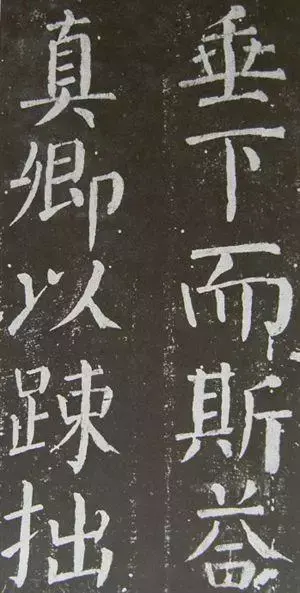 垂下而斯益
真卿以踈拙